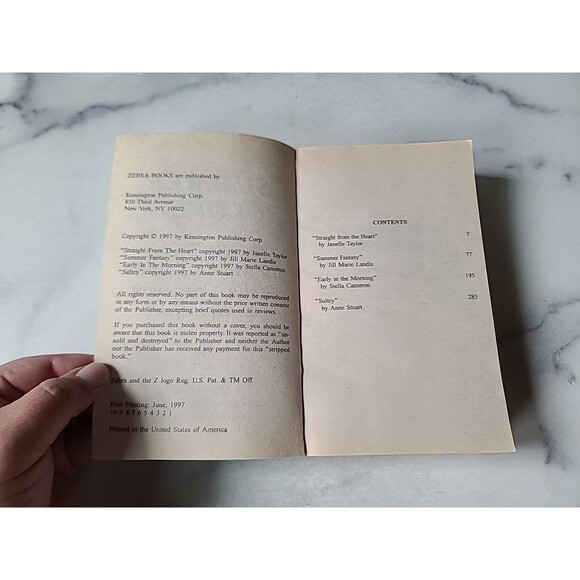 ZEBRA BOOKS are published by
Kensington Publishing Corp.
850 Third Avenue
New York, NY 10022
Copyright © 1997 by Kensington Publishing Corp.
"Straight From The Heart" copyright 1997 by Janelle Taylor
"Summer Fantasy" copyright 1997 by Jill Marie Landis
"Early In The Morning" copyright 1997 by Stella Cameron
"Sultry" copyright 1997 by Anne Stuart
All rights reserved. No part of this book may be reproduced
in any form or by any means without the prior written consent
of the Publisher, excepting brief quotes used in reviews.
If you purchased this book without a cover, you should be
aware that this book is stolen property. It was reported as "un-
sold and destroyed" to the Publisher and neither the Author
nor the Publisher has received any payment for this "stripped
book."
Zebra and the Z logo Reg. U.S. Pat. & TM Off.
First Printing: June, 1997
10 9 8 7 6 5 4 3 2 1
Printed in the United States of America
CONTENTS
"Straight from the Heart" 7
by Janelle Taylor
"Summer Fantasy" 77
by Jill Marie Landis
"Early in the Morning" 195
by Stella Cameron
"Sultry" 285
by Anne Stuart